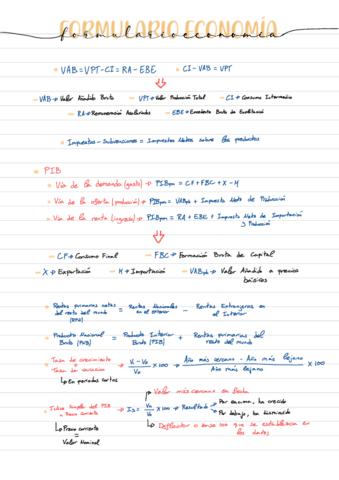 FORMULARIO ECONOMÍA
formulario economía
VAB = VPT - CI = RA - EBE
CI - VAB = VPT
VAB → Valor Añadido Bruto
VPT → Valor Producción Total
CI → Consumo Intermedio
RA → Remuneración Asalariados
EBE → Excedente Bruto de Explotación
Impuestos - Subvenciones = Impuestos Netos sobre los productos
PIB
Vía de la demanda (gasto) → PIBpm = CF + FBC + X - M
Vía de la oferta (producción) → PIBpm = VABpb + Impuesto Neto de Producción
Vía de la renta (ingresos) → PIBpm = RA + EBE + Impuesto Neto de Importación y Producción
CF → Consumo Final
FBC → Formación Bruta de Capital
X → Exportación
M → Importación
VABpb → Valor Añadido a precios básicos
Rentas primarias netas del resto del mundo = Rentas Nacionales en el exterior - Rentas Extranjeras en el Interior
Producto Nacional Bruto (PNB) = Producto Interior Bruto (PIB) + Rentas primarias del resto del mundo
Tasa de crecimiento = Tasa de variación
V₁ - V₀ / V₀ × 100 → Año más cercano - Año más lejano / Año más lejano × 100
↳ En periodos cortos
Valor más cercano en fecha
Índice Simple del PIB a Precio corriente → Is = Vn / V₀ × 100 → Resultado
Por encima, ha crecido
Por debajo, ha disminuido
↳ Precio corriente = Valor Nominal
↳ Deflactor o base 100 que se establezca en los datos